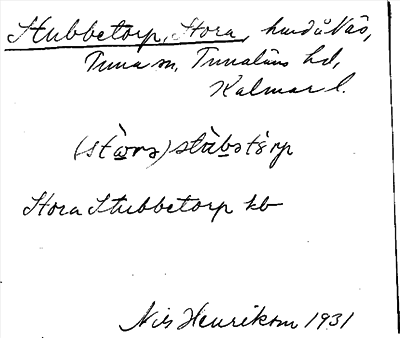 Stubbetorp, Stora, hmd å Näs,
Tuna sn, Tunaläns hd,
Kalmar l.
(stɷ̀rə) stàbətɷrp
Stora Stubbetorp kb
Nils Henrikson 1931